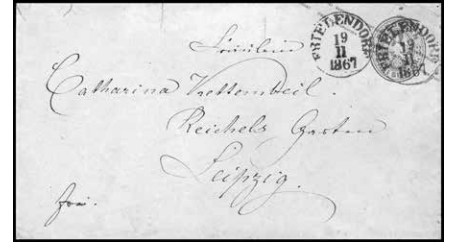 FRIELENDORF
19
11
1867
FRIELENDORF
19
11
1867
Fräulein
Catharina Vottembeil.
Reichels Garten
Leipzig.
frei.